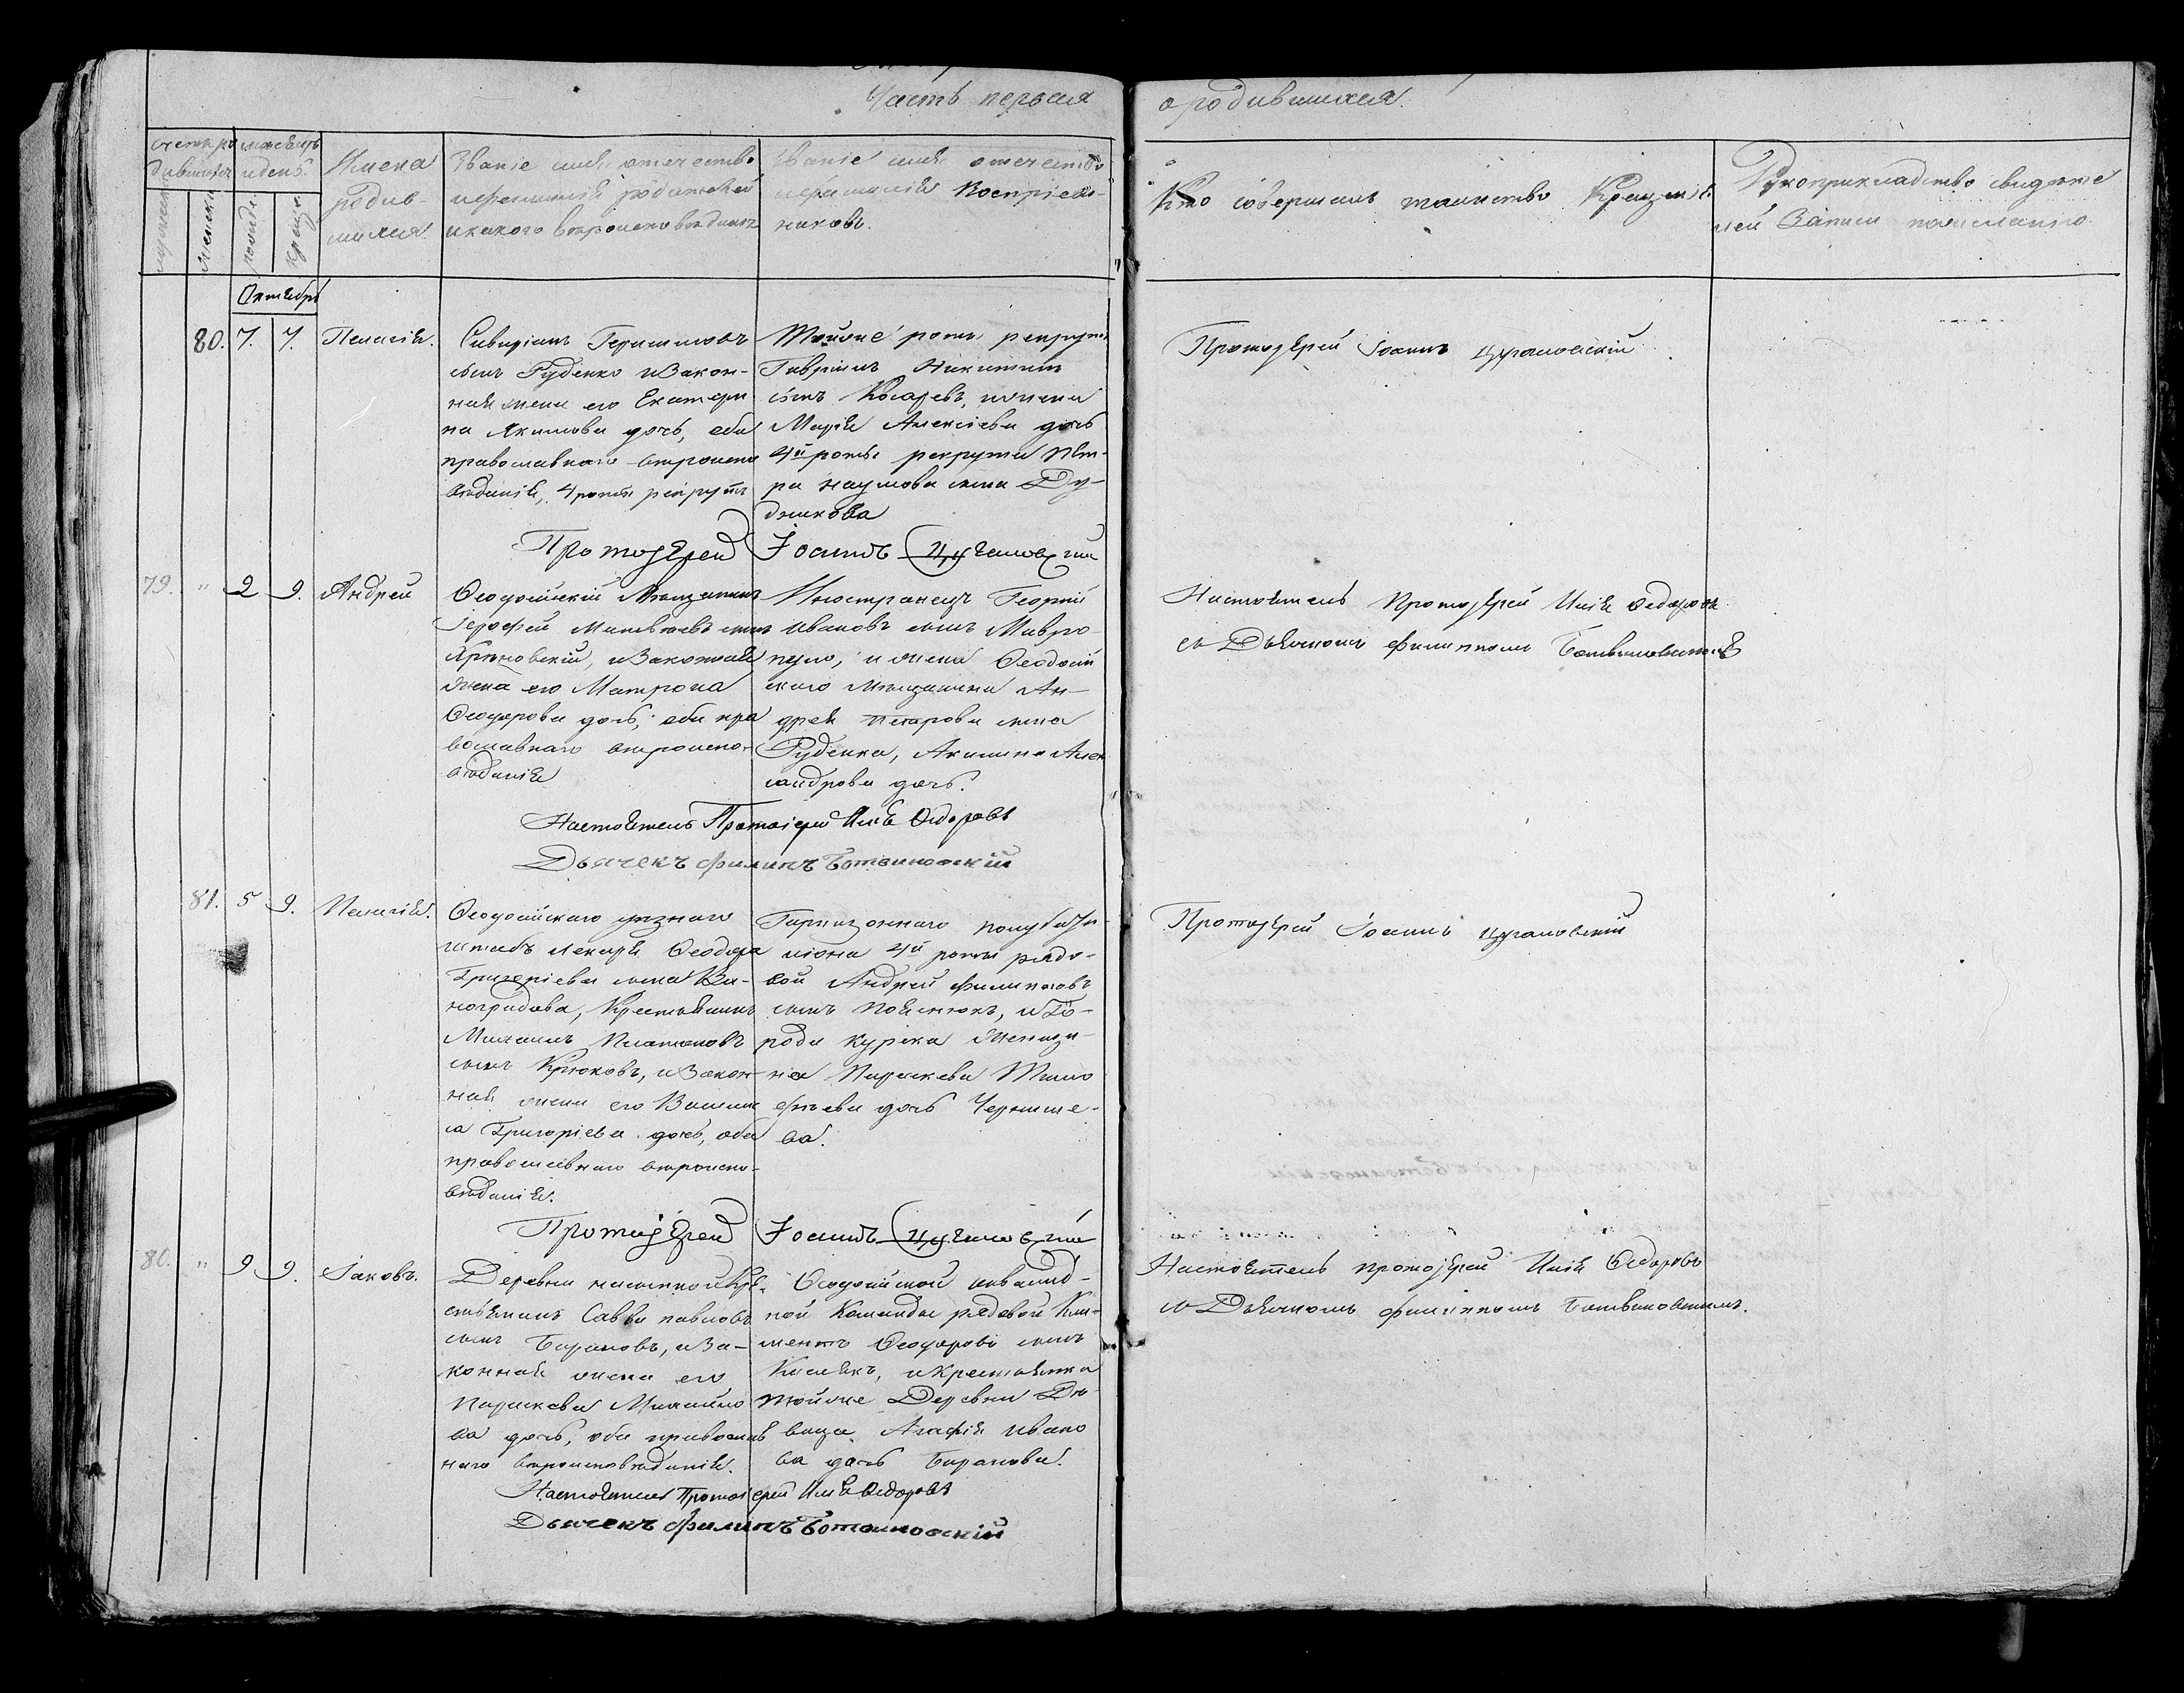 Часть первая
о родившихся.
Имена родив-шихся
Званіе имя отечество
и фамилія родителей
и какого вѣроисповѣданія
Званіе имя отечество
и фамилія Воспріем-
никовъ.
Кто совершалъ таинство Крещенія
Рукоприкладство свидѣте
лей Записи по желанію
Октября
80. 7. 7. Пелагія.
Герасимовъ
сынъ Руденко и Закон-
ная жена его Екатери
на Якимова дочь, оба
православнаго вѣроиспо
вѣданія, 4 роты рекрутъ
Тойже роты рекрутъ
Гавріилъ Никитинъ
сынъ Косаревъ, и жена
Марія Алексіева дочь
4й роты рекрута Пет-
ра Наумова сына Ду-
дникова
Протоіерей Іоаннъ
Протоіерей Іоаннъ
79. " 2 9. Андрей
Ѳеодосійскій Мѣщанинъ
Іерофей сынъ
и Законная
жена его Матрона
Ѳеодорова дочь, оба пра
вославнаго вѣроиспо-
вѣданія
Иностранецъ Георгій
Ивановъ сынъ Мавро-
пуло, и жена Ѳеодосій
скаго мѣщанина Ан-
дрея Петрова сына
Руденка, Акилина Алек
сандрова дочь.
Настоятель Протоіерей Илія Ѳедоровъ
съ Дьячкомъ Филиппомъ
Настоятель Протоіерей Илія Ѳедоровъ
Дьячекъ Филипъ Ботвиновскій
81. 5 9. Пелагія.
Ѳеодосійскаго уѣзнаго
штабъ лекаря Ѳеодора
Григоріева сына Ви-
ноградова, Крестьянинъ
Михаилъ Платоновъ
сынъ Крюковъ, и Закон-
ная жена его Васили
са Григоріева дочь, оба
православнаго вѣроиспо-
вѣданія.
Гарнизоннаго полубатал-
іона 4й роты рядо-
вой Андрей Филиповъ
сынъ и Го-
рода Курска Женщи-
на Параскева Тимо
фѣева дочь Черныше-
ва.
Протоіерей Іоаннъ
Протоіерей Іоаннъ
80. " 9 9. Іаковъ.
Деревни Кре-
стьянинъ Савва Павловъ
сынъ Барановъ, и За-
конная жена его
Параскева Михайло
ва дочь, оба православ
наго вѣроисповѣданія.
Ѳеодосійской инвалид-
ной Команды рядовой Кли-
ментъ Ѳеодоровъ сынъ
и Крестьянка
тойже Деревни Дѣ-
вица Агафія Ивано
ва дочь Баранова.
Настоятель Протоіерей Илія Ѳедоровъ
съ Дьячкомъ Филиппомъ Ботвиновскимъ.
Настоятель Протоіерей Илія Ѳедоровъ
Дьячекъ Филипъ Ботвиновскій